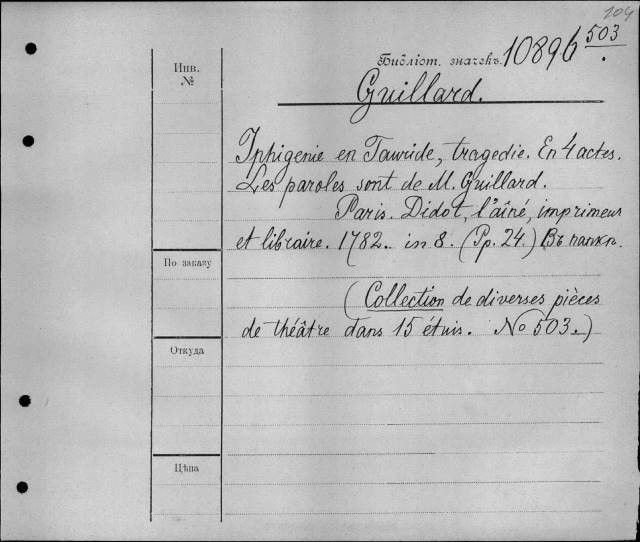 104
Библіот. значекъ. 10896 503.
Инв.
№
Guillard.
Iphigenie en Tauride, tragedie. En 4 actes.
Les paroles sont de M. Guillard.
Paris. Didot, l'aîné, imprimeur
et libraire. 1782. in 8. (Pp. 24.) Въ папкп.
По заказу
(Collection de diverses pièces
de théâtre dans 15 étuis. No 503.)
Откуда
Цѣна